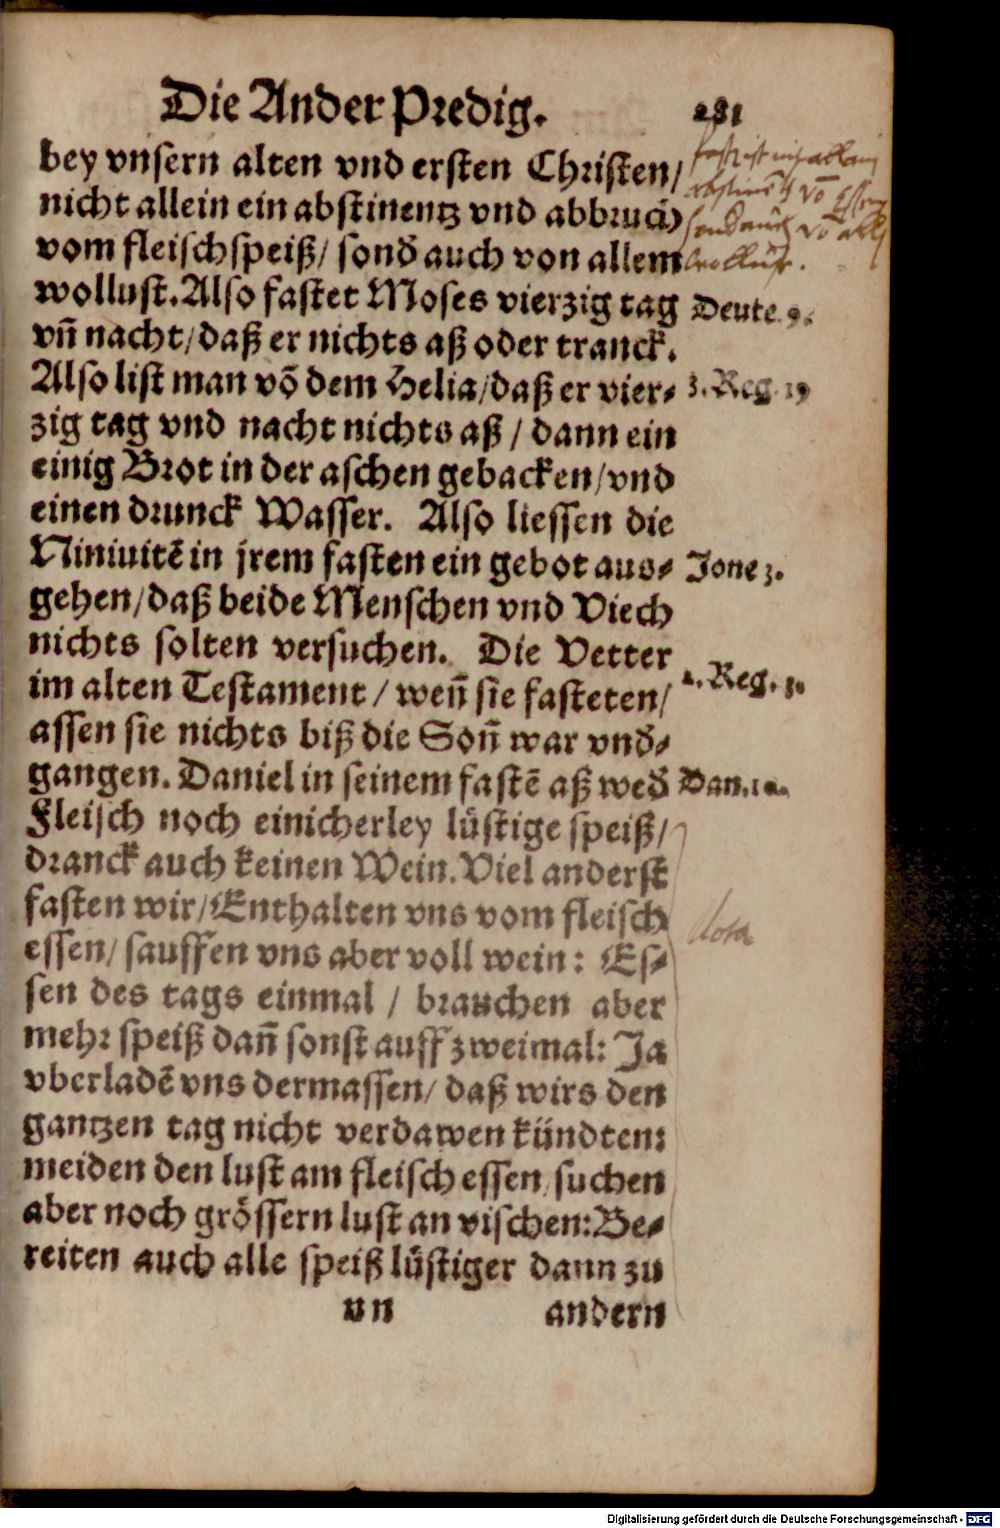 Die Ander Predig. 281
bey vnsern alten vnd ersten Christen/
nicht allein ein abstinentz vnd abbruch
vom fleischspeiß/ sond̄ auch von allem
wollust. Also fastet Moses vierzig tag Deute. 9.
vn̄ nacht/ daß er nichts aß oder tranck.
Also list man võ dem Helia/ daß er vier- 3. Reg. 19
zig tag vnd nacht nichts aß / dann ein
einig Brot in der aschen gebacken/ vnd
einen drunck Wasser. Also liessen die
Niniuitẽ in jrem fasten ein gebot aus- Jone 3.
gehen/ daß beide Menschen vnd Viech
nichts solten versuchen. Die Vetter
im alten Testament / wen̄ sie fasteten/ Reg.
assen sie nichts biß die Son̄ war vnd̄-
gangen. Daniel in seinem fastẽ aß wed̄ Dan. 10.
Fleisch noch einicherley lüstige speiß/
dranck auch keinen Wein. Viel anderst
fasten wir/ Enthalten vns vom fleisch
essen/ sauffen vns aber voll wein: Es- Nota
sen des tags einmal / brauchen aber
mehr speiß dan̄ sonst auff zweimal: Ja
vberladẽ vns dermassen/ daß wirs den
gantzen tag nicht verdawen kündten:
meiden den lust am fleisch essen/ suchen
aber noch grössern lust an vischen: Be-
reiten auch alle speiß lüstiger dann zu
vn andern
Digitalisierung gefördert durch die Deutsche Forschungsgemeinschaft - DFG